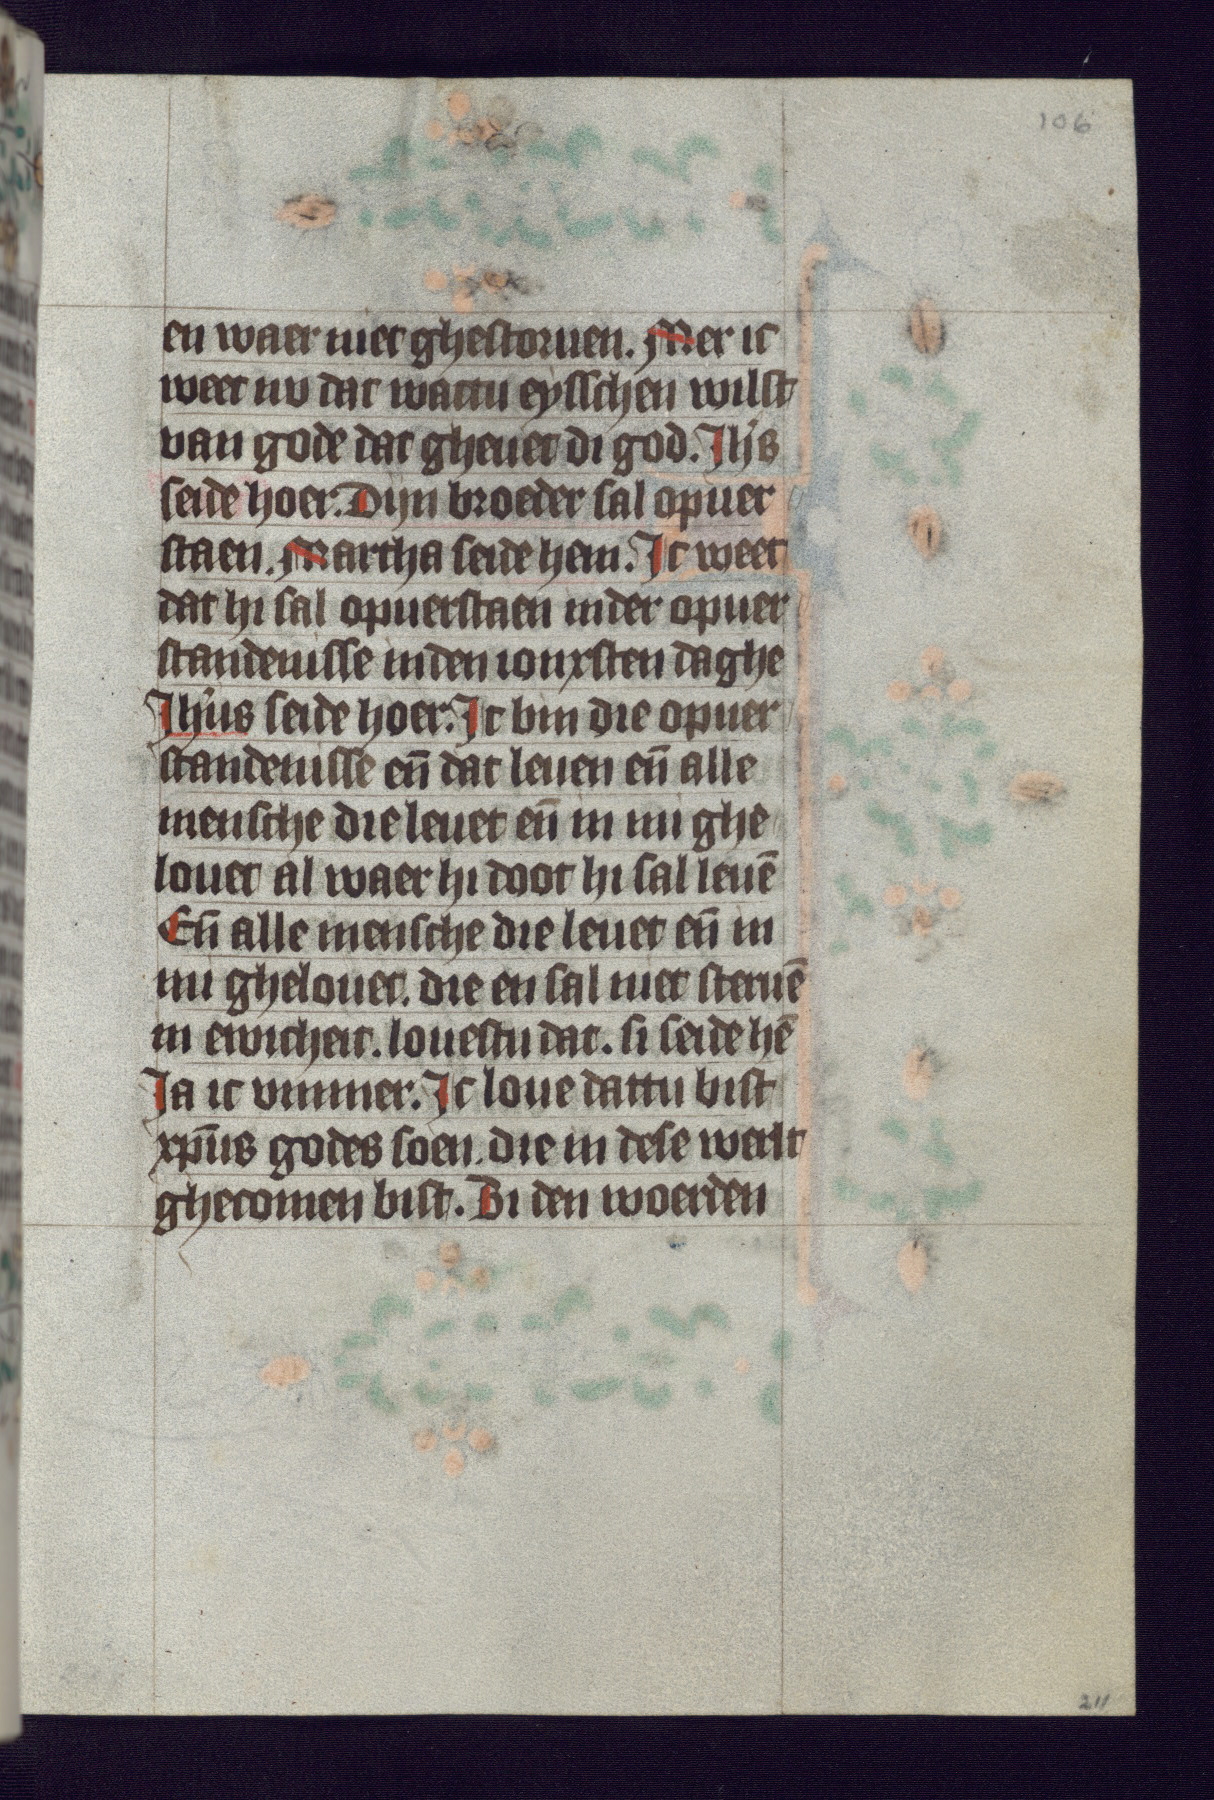 106
en waer niet ghestoruen. Mer ic
weet nv dat wattu eysschen wilst
van gode dat gheuet di god. Ihs̄
seide hoer. Dijn broeder sal opuer
staen. Martha seide hem. Ic weet
dat hi sal opuerstaen inder opuer
standenisse inden iouxsten daghe
Ihūs seide hoer. Ic bin die opuer
standenisse en̄ dat leuen en̄ alle
mensche die leuet en̄ in mi ghe
louet al waer hi doot hi sal leuē
En̄ alle mensche die leuet en̄ in
mi ghelouet. die en sal niet steruē
in ewicheit. louestu dat. si seide hē
Ja ic vmmer. Ic loue dattu bist
xp̄us godes soen. die in dese werlt
ghecomen bist. Bi den woerden
211